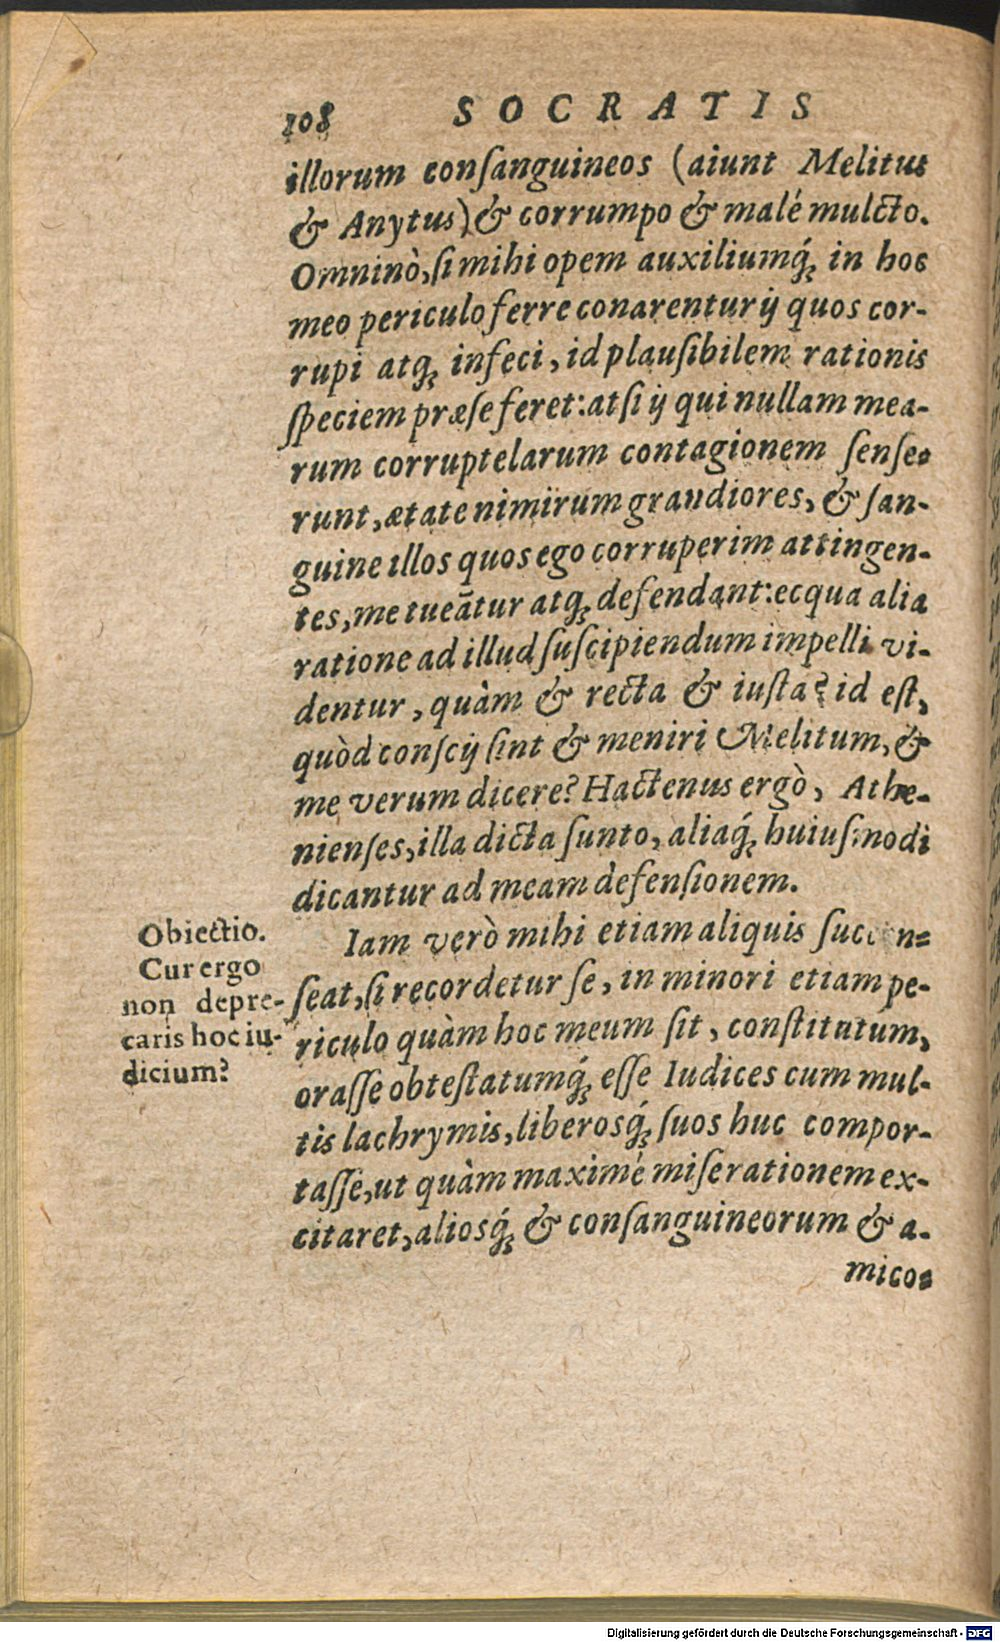 108 SOCRATIS
illorum conſanguineos (aiunt Melitus
& Anytus) & corrumpo & malé mulcto.
Omninò, ſi mihi opem auxiliumq́ꝫ in hoc
meo periculo ferre conarentur ij quos cor-
rupi atqꝫ infeci, id plauſibilem rationis
ſpeciem præſe feret: at ſi ij qui nullam mea-
rum corruptelarum contagionem ſenſe-
runt, ætate nimirum grandiores, & ſan-
guine illos quos ego corruperim attingen-
tes, me tueãtur atqꝫ defendant: ecqua alia
ratione ad illud ſuſcipiendum impelli vi-
dentur, quàm & recta & iuſta? id eſt,
quòd conſcij ſint & meniri Melitum, &
me verum dicere? Hactenus ergò, Athe-
nienſes, illa dicta ſunto, aliaq́ꝫ huiuſmodi
dicantur ad meam defenſionem.
Obiectio.
Cur ergo
non depre-
caris hoc iu-
dicium?
Iam verò mihi etiam aliquis
ſeat, ſi recordetur ſe, in minori etiam pe-
riculo quàm hoc meum ſit, conſtitutum,
oraſſe obteſtatumq́ꝫ eſſe Iudices cum mul-
tis lachrymis, liberosq́ꝫ ſuos huc compor-
taſſe, ut quàm maximé miſerationem ex-
citaret, aliosq́ꝫ & conſanguineorum & a-
mico-
Digitalisierung gefördert durch die Deutsche Forschungsgemeinschaft - DFG